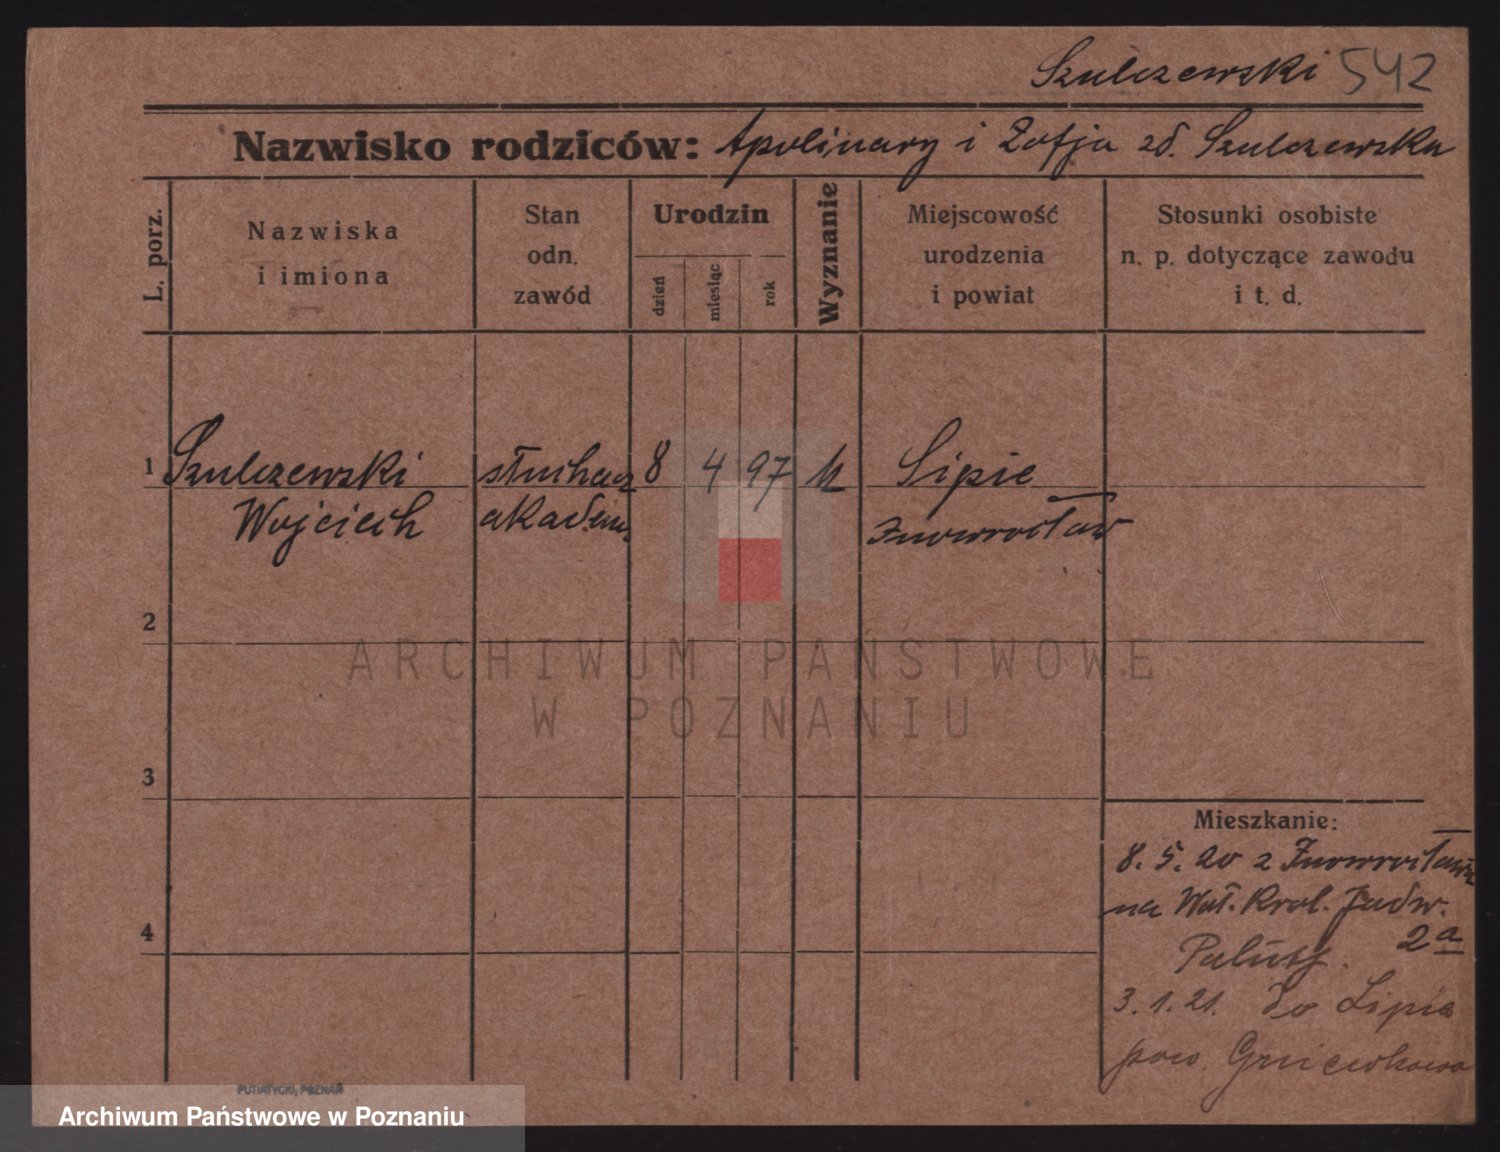 Szulczewski 542
Nazwisko rodziców: Apolinary i Zofja zd. Szulczewska
L. porz.
Nazwiska
i imiona
Stan
odn.
zawód
Urodzin
dzień
miesiąc
rok
Wyznanie
Miejscowość
urodzenia
i powiat
Stosunki osobiste
n. p. dotyczące zawodu
i t. d.
1 Szulczewski słuchacz 8 4 97 k Lipie
Wojciech akadem. Inowrocław
2
ARCHIWUM PAŃSTWOWE
W POZNANIU
3
Mieszkanie:
8. 5. 20 z Inowrocławia
na Wał. Krol. Jadw.
4
2a
3. 1. 21. do Lipia
pow. Gniewkowo
PUTIATYCKI, POZNAŃ
Archiwum Państwowe w Poznaniu